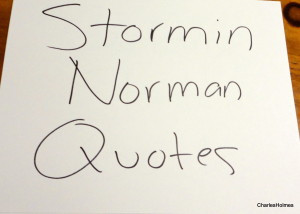 Stormin
Norman
Quotes
CharlesHolmes